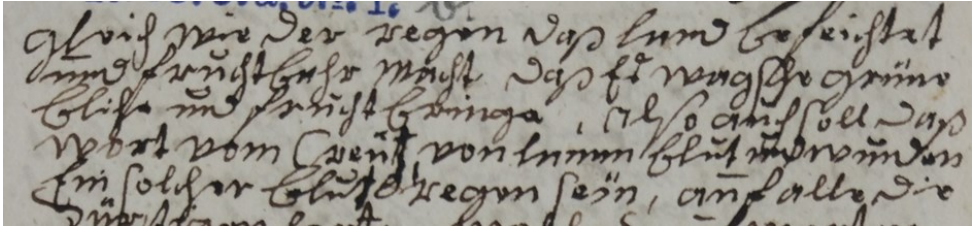 gleich wie der regen daß land befeichtet
und fruchtbahr macht, daß Es wagsche grüne
blihe und frucht bringe, also auch soll daß
wort vom Creutz, von lamm blut und wunden
Ein solcher blutsregen seÿn, auf alle die